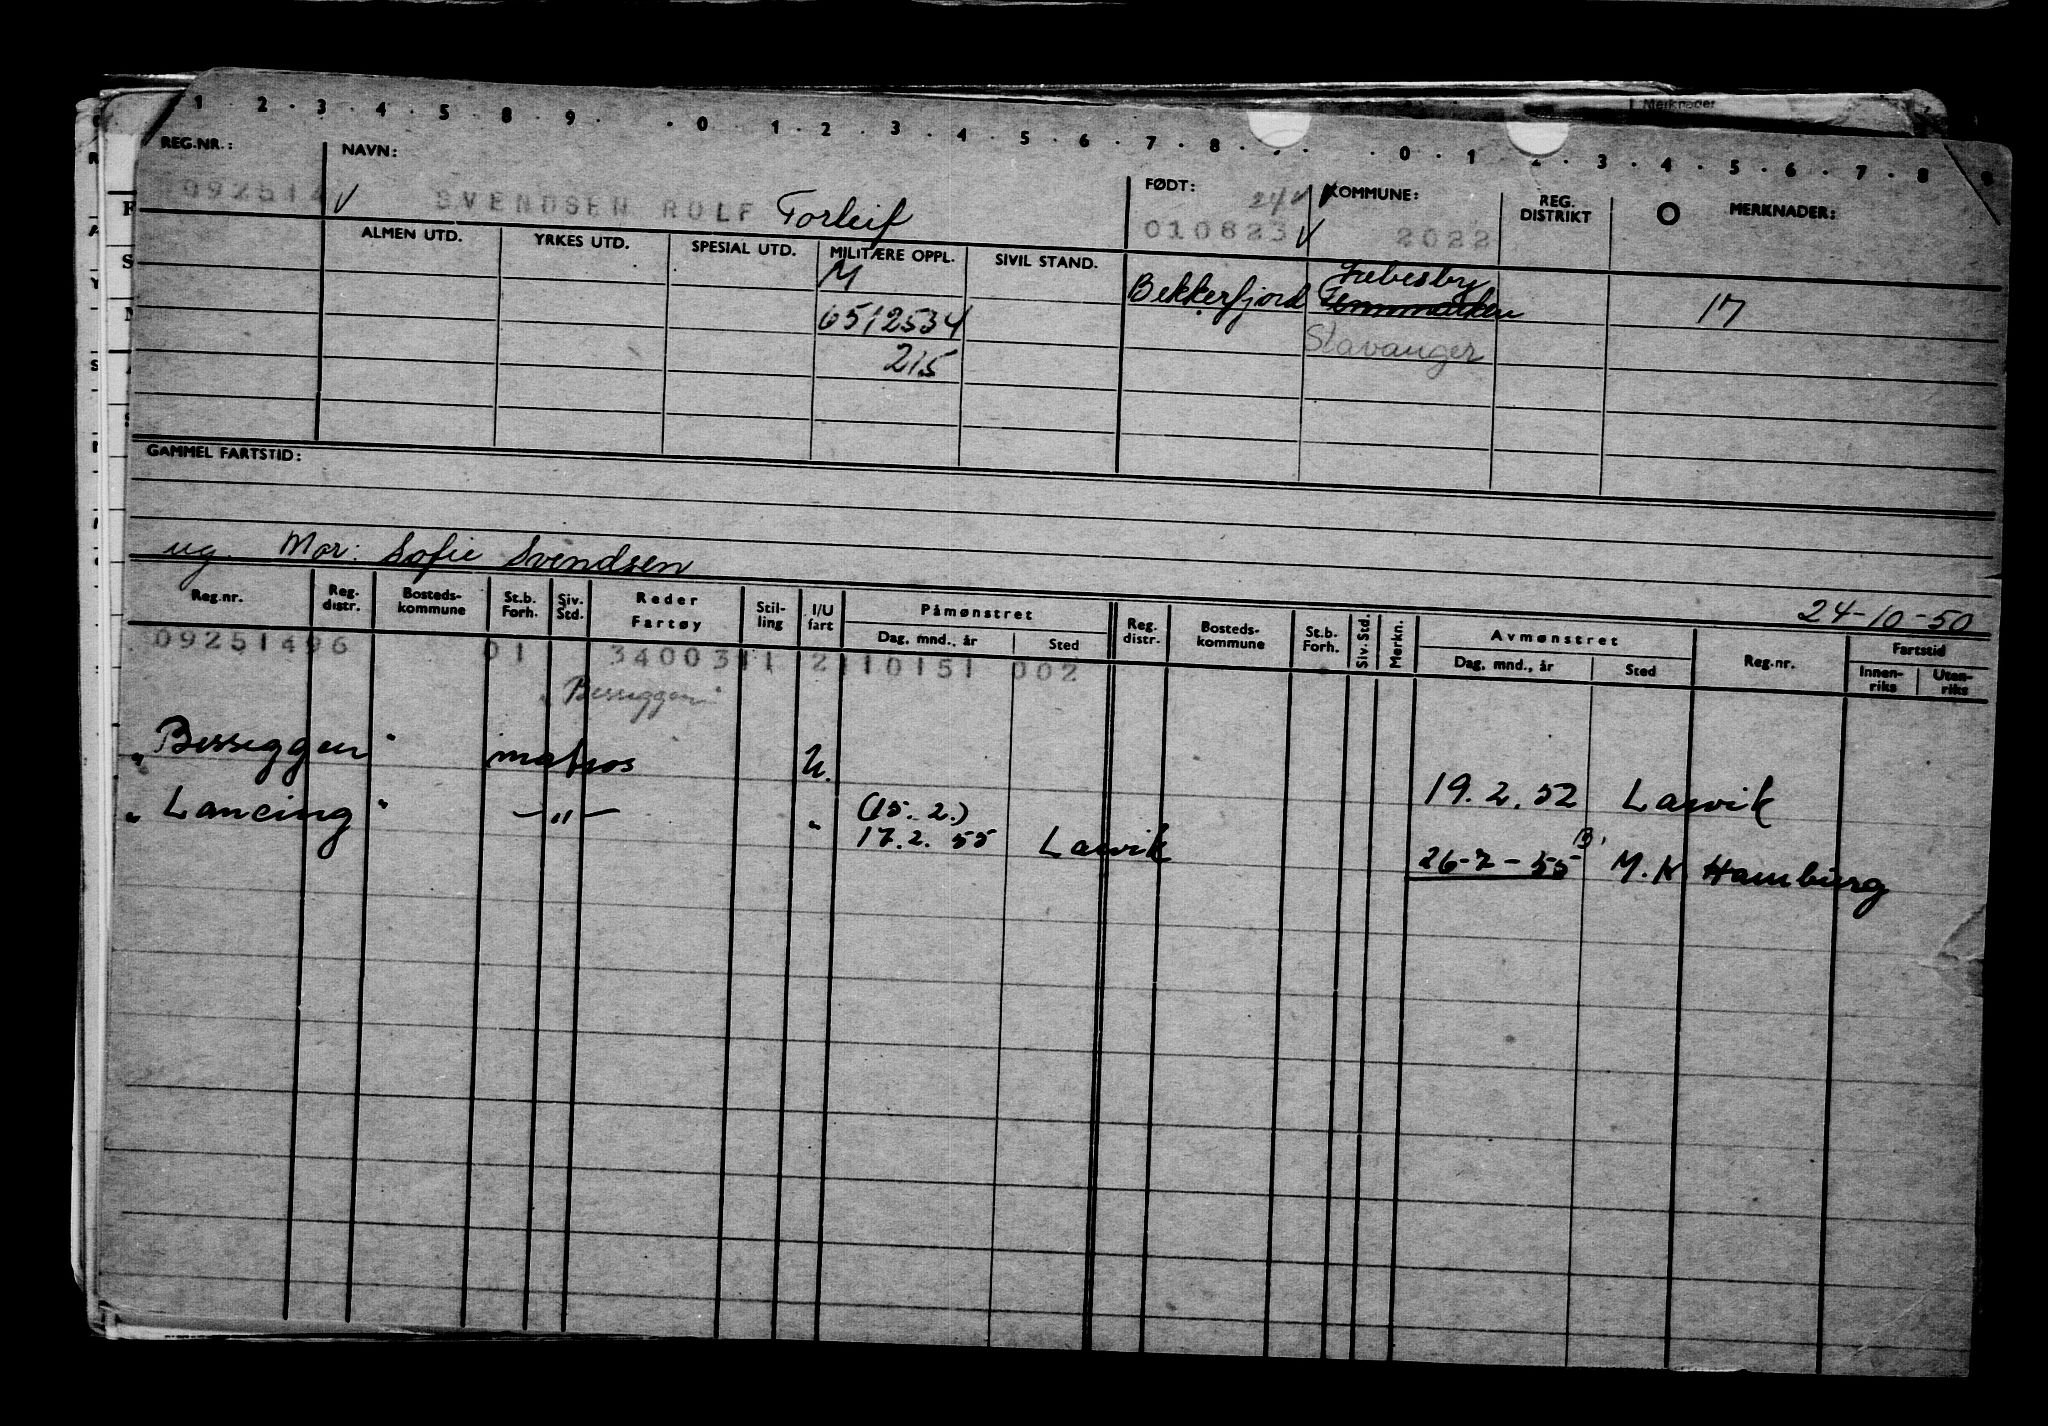 1 · 2 · 3 · 4 · 5 · 8 · 9 · · 0 · 1 · 2 · 3 · 4 · 5 · 6 · 7 · 8 · · 0 · 1 · 2 · 3 · 4 · 5 · 6 · 7 · 8 · 9
REG.NR.: NAVN: FØDT: 24 KOMMUNE: REG. DISTRIKT O MERKNADER:
092514 SVENDSEN ROLF Torleif 010623 2022
ALMEN UTD. YRKES UTD. SPESIAL UTD. MILITÆRE OPPL. SIVIL STAND.
M Bekkerfjord Lebesby 17
6512534
Stavanger
215
GAMMEL FARTSTID:
ug. Mor: Sofie Svendsen
24-10-50
Reg.nr. Reg. distr. Bosteds-kommune St.b. Forh. Siv. Std. Reder Fartøy Stil-ling I/U fart Påmønstret Dag, mnd., år Sted Reg. distr. Bosteds-kommune St.b. Forh. Siv. Std. Merkn. Avmønstret Dag, mnd., år Sted Reg.nr. Fartstid Innen-riks Uten-riks
09251496 01 3400311 2 110151 002
"Besseggen"
"Besseggen" matros U. 19.2.52 Larvik
"Lancing" —"— " (15. 2.)
17.2. 55 Larvik 26-7-55 M.K Hamburg